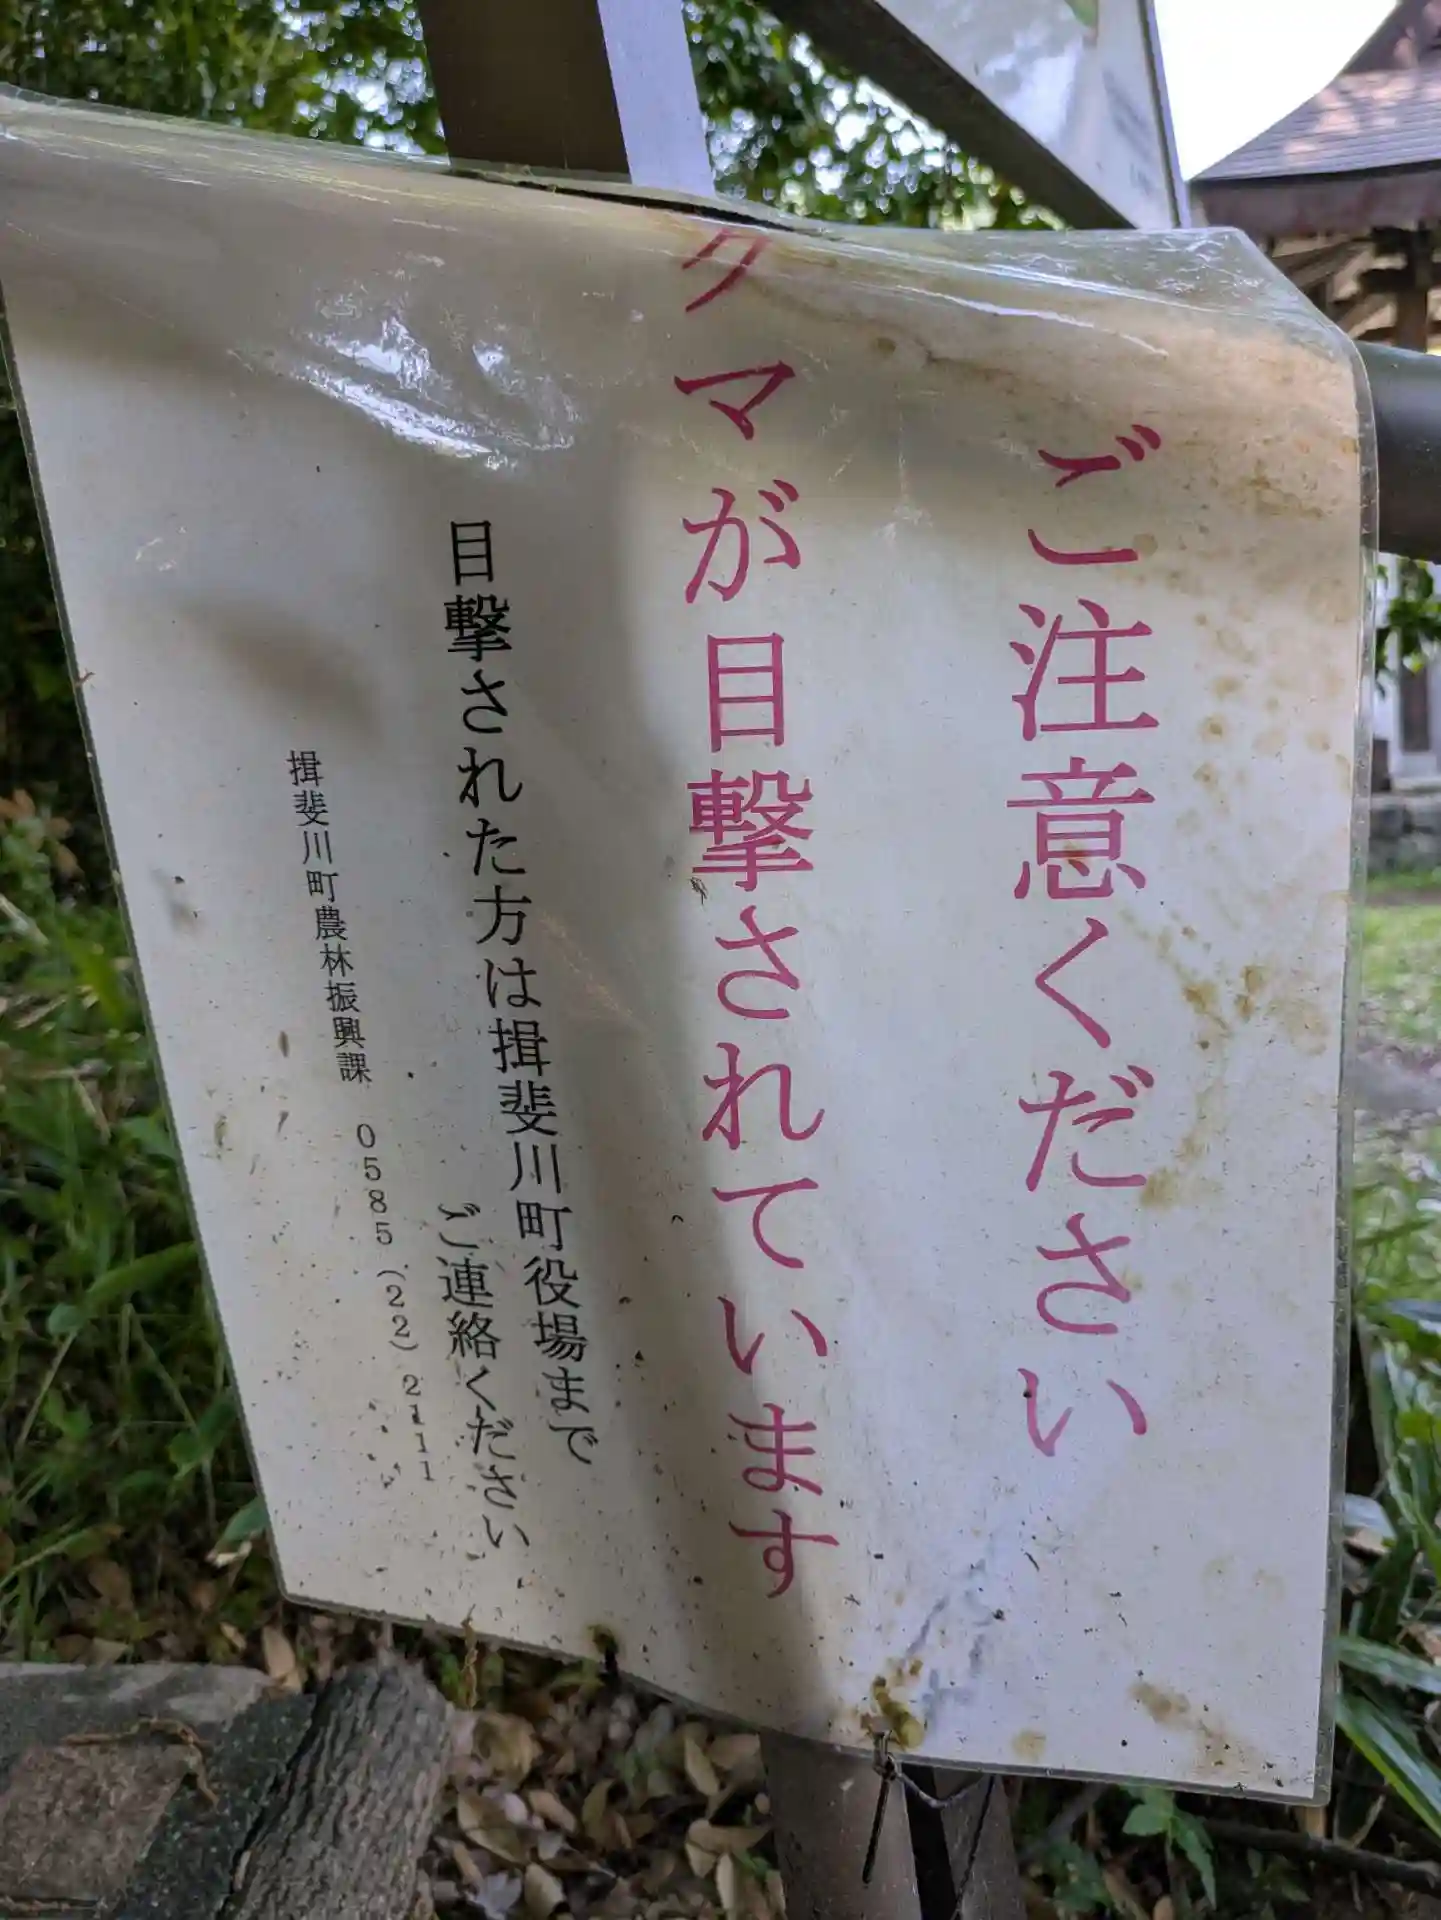 ご注意ください
クマが目撃されています
目撃された方は揖斐川町役場まで
ご連絡ください
揖斐川町農林振興課 0585(22)2111